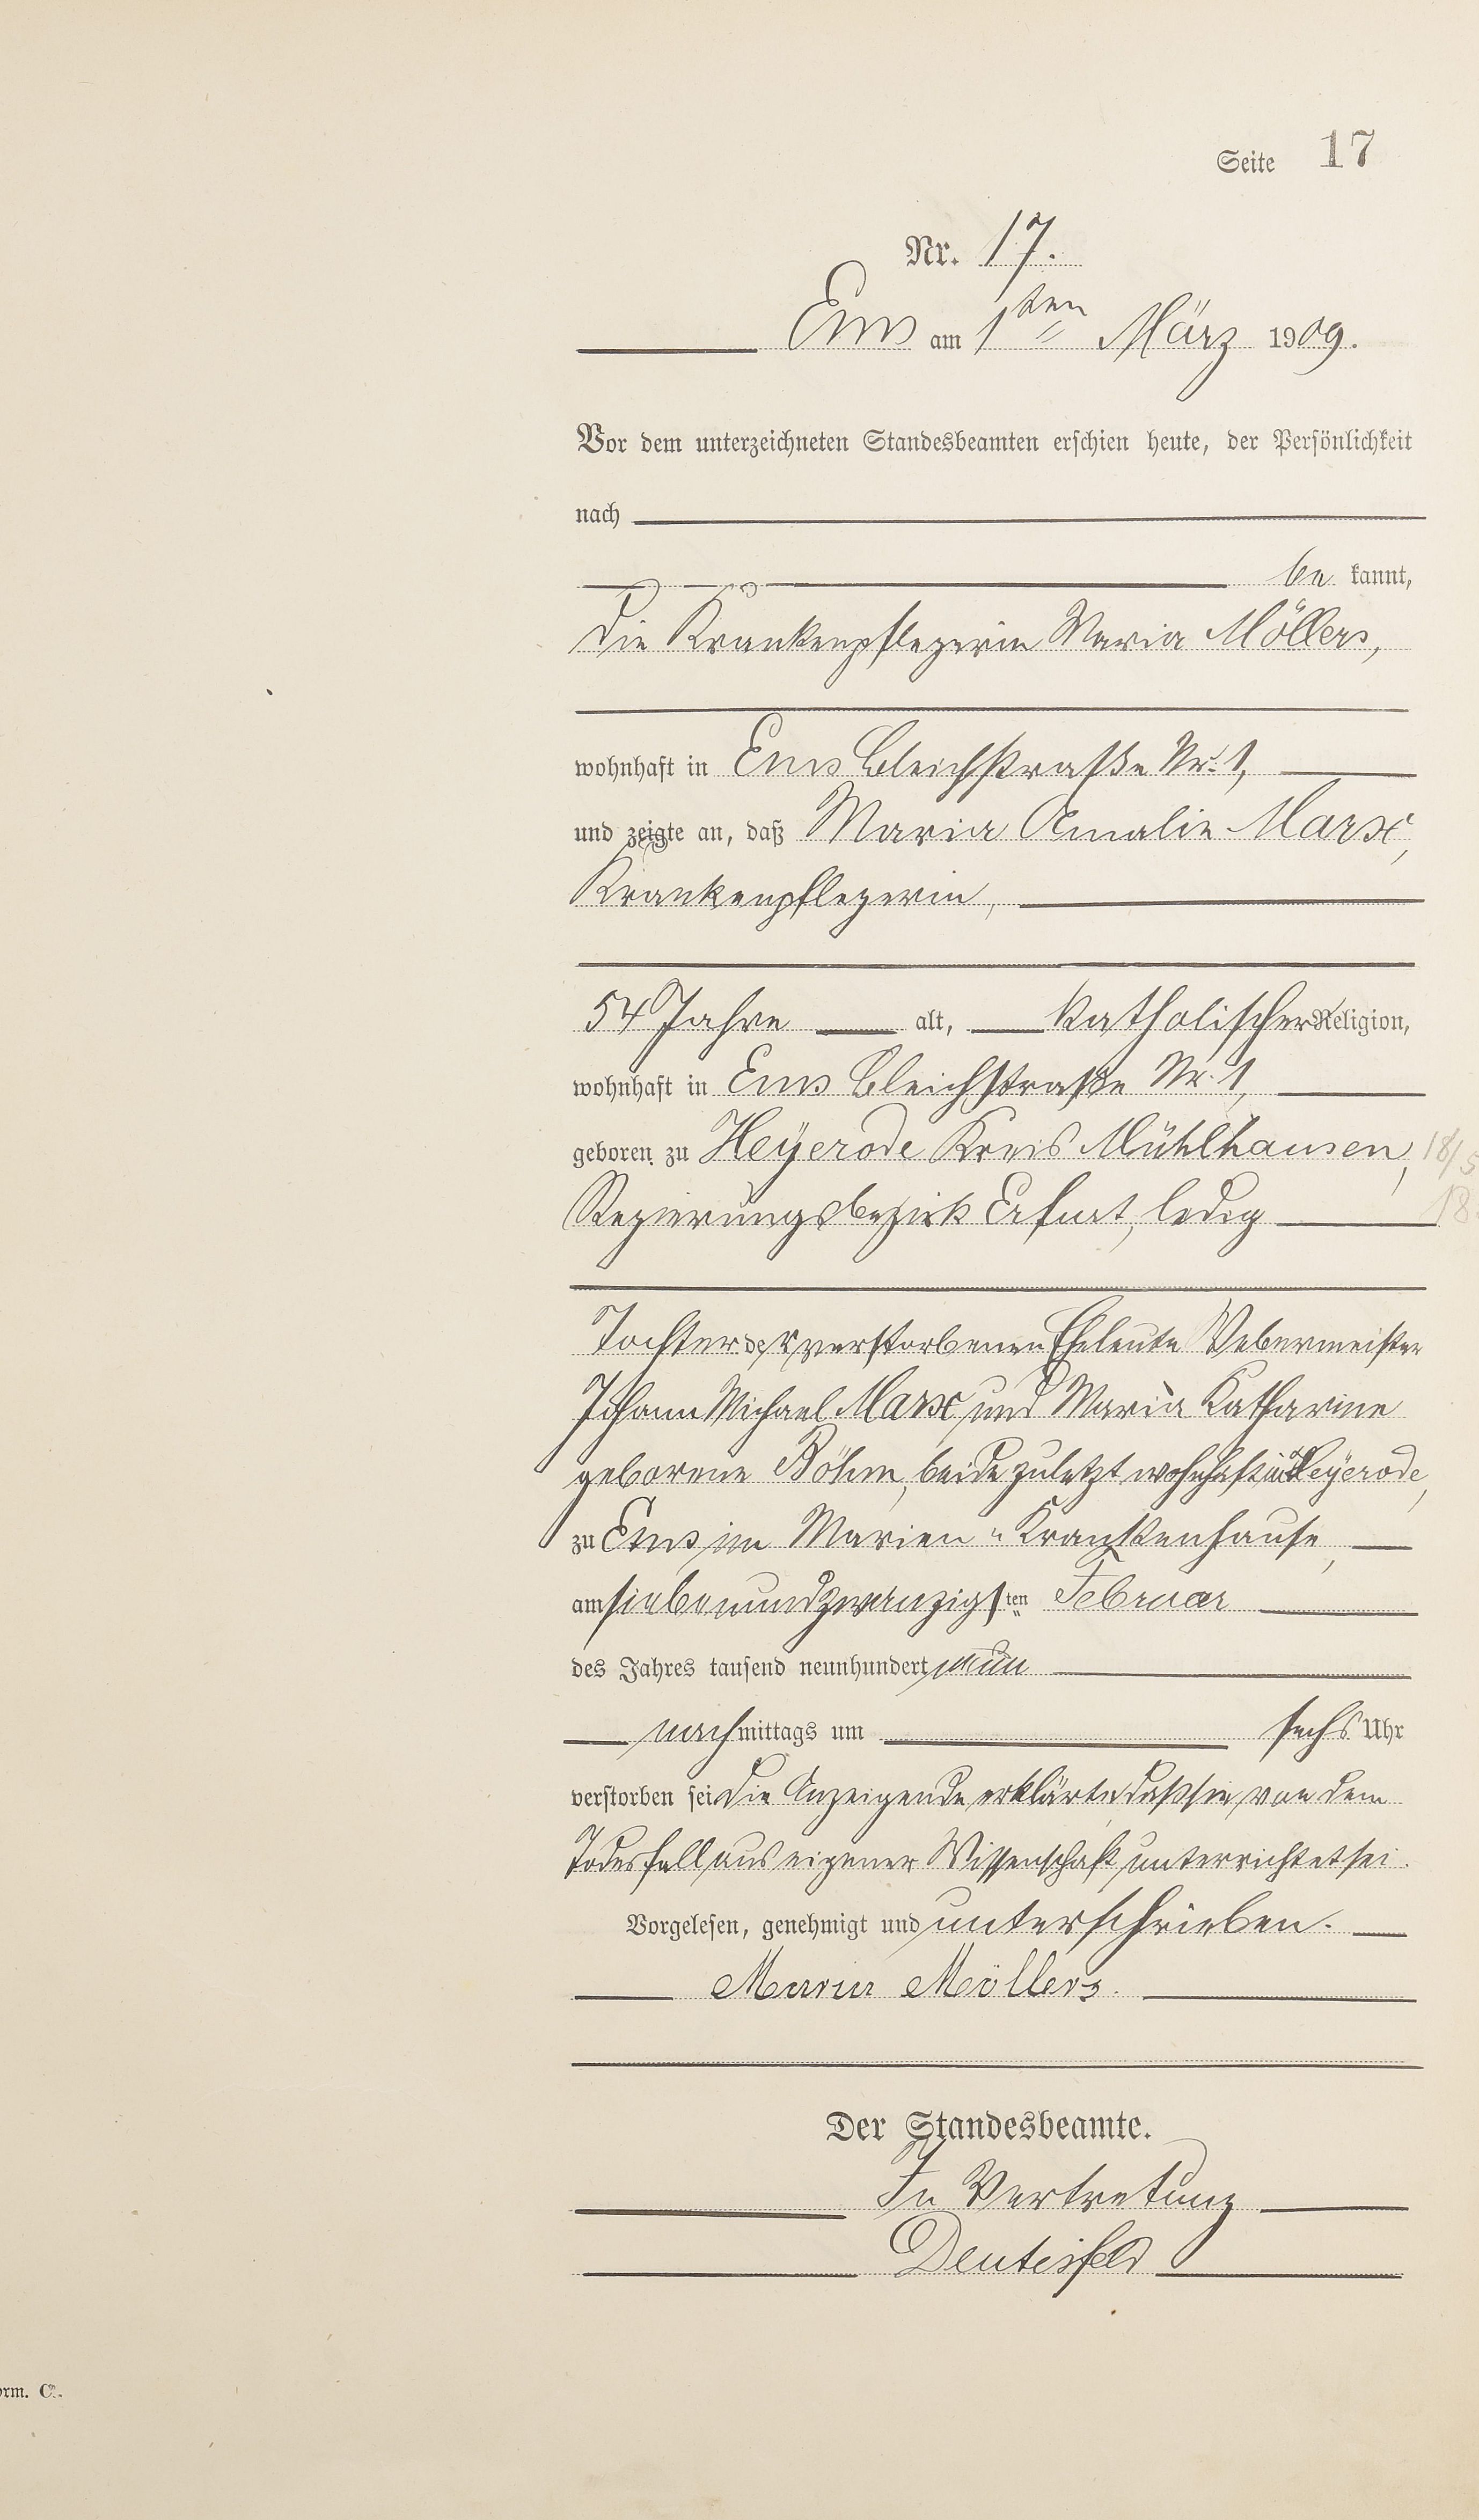 Seite 17
Nr. 17.
Ems am 1ten März 1909.
Vor dem unterzeichneten Standesbeamten erschien heute, der Persönlichkeit
nach
be kannt,
die Krankenpflegerin Maria Möllers,
wohnhaft in Ems Bleichstraße Nr. 1,
und zeigte an, daß Maria Amalie Marx,
Krankenpflegerin,
54 Jahre alt, katholischer Religion,
wohnhaft in Ems Bleichstraße Nr. 1,
geboren zu Heyerode Kreis Mühlhausen, 18/5
Regierungsbezirk Erfurt, ledig 18
Tochter der verstorbenen Eheleute Webermeister
Johann Michael Marx und Maria Katharine
geborene Böhm, beide zuletzt wohnhaft in Heyerode,
zu Ems im Marien-Krankenhause,
am siebenundzwanzigsten Februar
des Jahres tausend neunhundert neun
nachmittags um sechs Uhr
verstorben sei die Anzeigende erklärte daß sie von dem
Todesfall aus eigener Wissenschaft unterrichtet sei.
Vorgelesen, genehmigt und unterschrieben.
Maria Möllers.
Der Standesbeamte.
In Vertretung
orm. C.